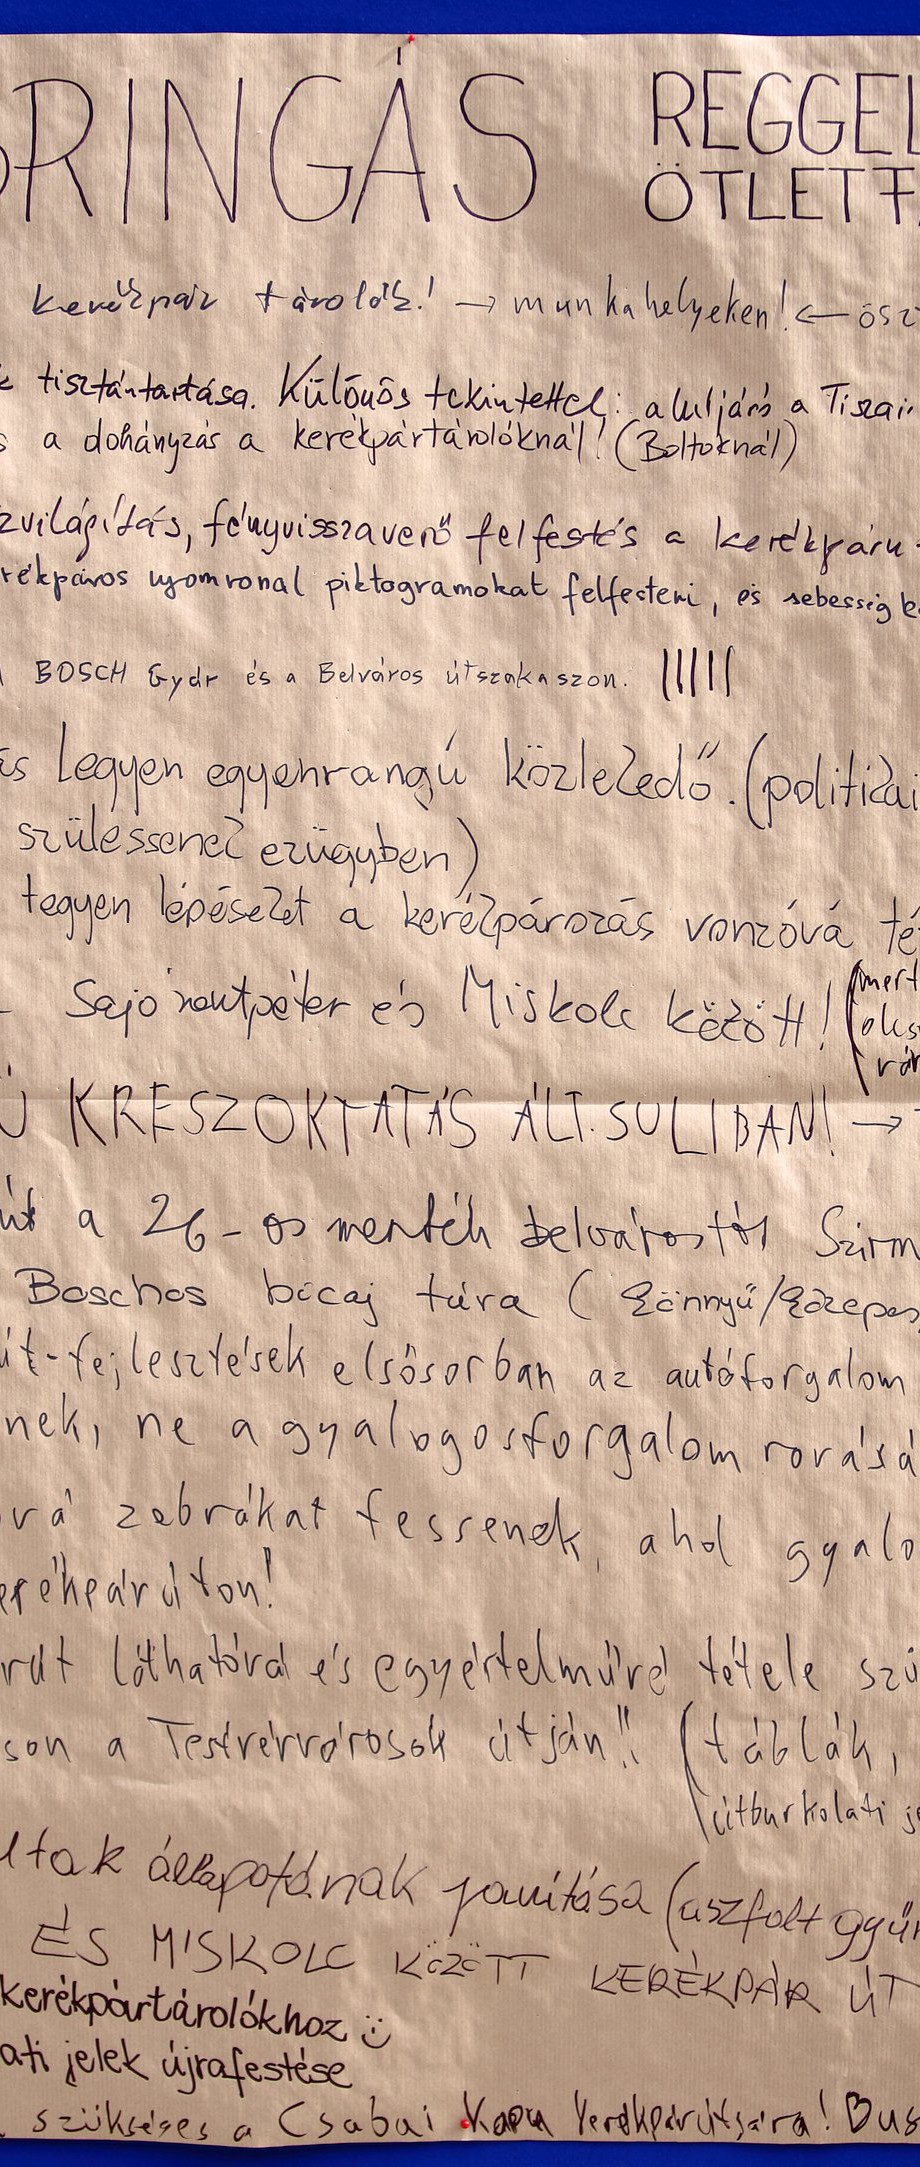 RINGÁS
REGGEL
ÖTLETT
kerékpár tárolók! → munkahelyeken! ← ösz
tisztántartása. Különös tekintettel: aluljáró a Tiszai
a dohányzás a kerékpártárolóknál! (Boltoknál)
zvilágítás, fényvisszaverő felfestés a kerékpáru
rékpáros nyomvonal piktogramokat felfesteni, és sebesség
BOSCH Gyár és a Belváros útszakaszon. ||||||
ás legyen egyenrangú közlekedő. (politikai
szülessenek ezügyben)
tegyen lépéseket a kerékpározás vonzóvá té
Sajószentpéter és Miskolc között! (mert
olcs
Ú KRESZOKTATÁS ÁLT. SULIBAN! →
út a 26-os mentén belvárostól Szirm
Boschos bicaj túra (könnyű/közepes
út-fejlesztések elsősorban az autóforgalom
nek, ne a gyalogosforgalom rovásá
vá zebrákat fessenek, ahol gyalo
erékpárúton!
rút láthatóvá és egyértelművé tétele szü
son a Testvérvárosok útján!! (táblák,
útburkolati je
ltak állapotának javítása (aszfalt gyűr
ÉS MISKOLC KÖZÖTT KERÉKPÁR ÚT
kerékpártárolókhoz :)
ati jelek újrafestése
szükséges a Csabai Kapu kerékpárútjára!